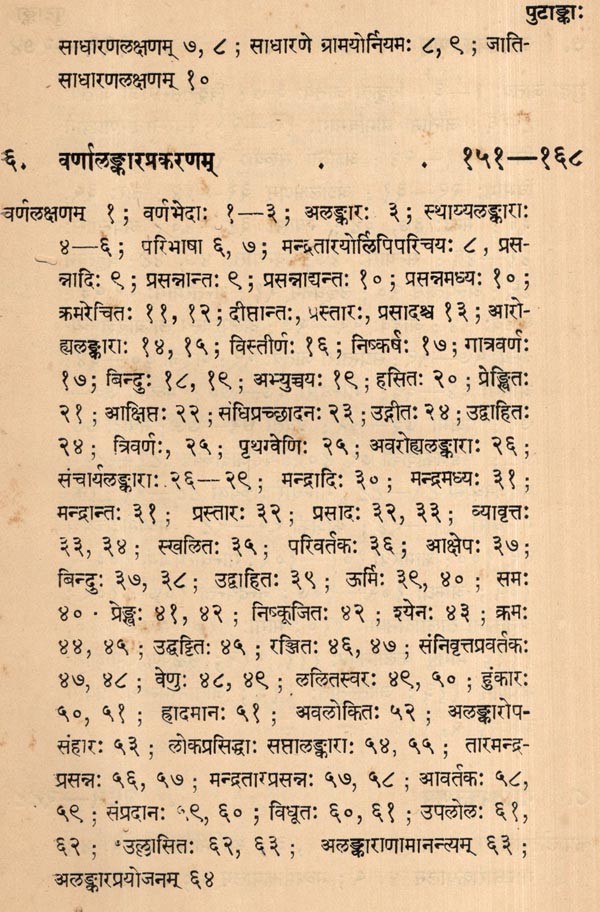 पुटाङ्काः
साधारणलक्षणम् ७, ८ ; साधारणे ग्रामयोर्नियमः ८, ९ ; जाति-
साधारणलक्षणम् १०
६. वर्णालङ्कारप्रकरणम् . . १५१—१६८
वर्णलक्षणम् १ ; वर्णभेदाः १—३ ; अलङ्कारः ३ ; स्थाय्यलङ्काराः
४—६ ; परिभाषा ६, ७ ; मन्द्रतारयोर्लिपिपरिचयः ८ , प्रस-
न्नादिः ९ ; प्रसन्नान्तः ९ ; प्रसन्नाद्यन्तः १० ; प्रसन्नमध्यः १० ;
क्रमरेचितः ११, १२ ; दीप्तान्तः, प्रस्तारः, प्रसादश्च १३ ; आरो-
ह्यलङ्काराः १४, १५ ; विस्तीर्णः १६ ; निष्कर्षः १७ ; गात्रवर्णः
१७ ; बिन्दुः १८, १९ ; अभ्युच्चयः १९ ; हसितः २० ; प्रेङ्खितः
२१ ; आक्षिप्तः २२ ; संधिप्रच्छादनः २३ ; उद्गीतः २४ ; उद्वाहितः
२४ ; त्रिवर्णः, २५ ; पृथग्वेणिः २५ ; अवरोह्यलङ्काराः २६ ;
संचार्यलङ्काराः २६—२९ ; मन्द्रादिः ३० ; मन्द्रमध्यः ३१ ;
मन्द्रान्तः ३१ ; प्रस्तारः ३२ ; प्रसादः ३२, ३३ ; व्यावृत्तः
३३, ३४ ; स्खलितः ३५ ; परिवर्तकः ३६ ; आक्षेपः ३७ ;
बिन्दुः ३७, ३८ ; उद्वाहितः ३९ ; ऊर्मिः ३९, ४० ; समः
४० · प्रेङ्खः ४१, ४२ ; निष्कूजितः ४२ ; श्येनः ४३ ; क्रमः
४४, ४५ ; उद्घट्टितः ४५ ; रञ्जितः ४६, ४७ ; संनिवृत्तप्रवर्तकः
४७, ४८ ; वेणुः ४८, ४९ ; ललितस्वरः ४९, ५० ; हुंकारः
५०, ५१ ; ह्रादमानः ५१ ; अवलोकितः ५२ ; अलङ्कारोप-
संहारः ५३ ; लोकप्रसिद्धाः सप्तालङ्काराः ५४, ५५ ; तारमन्द्र-
प्रसन्नः ५६, ५७ ; मन्द्रतारप्रसन्नः ५७, ५८ ; आवर्तकः ५८,
५९ ; संप्रदानः ५९, ६० ; विधूतः ६०, ६१ ; उपलोलः ६१,
६२ ; उल्लासितः ६२, ६३ ; अलङ्काराणामानन्त्यम् ६३ ;
अलङ्कारप्रयोजनम् ६४